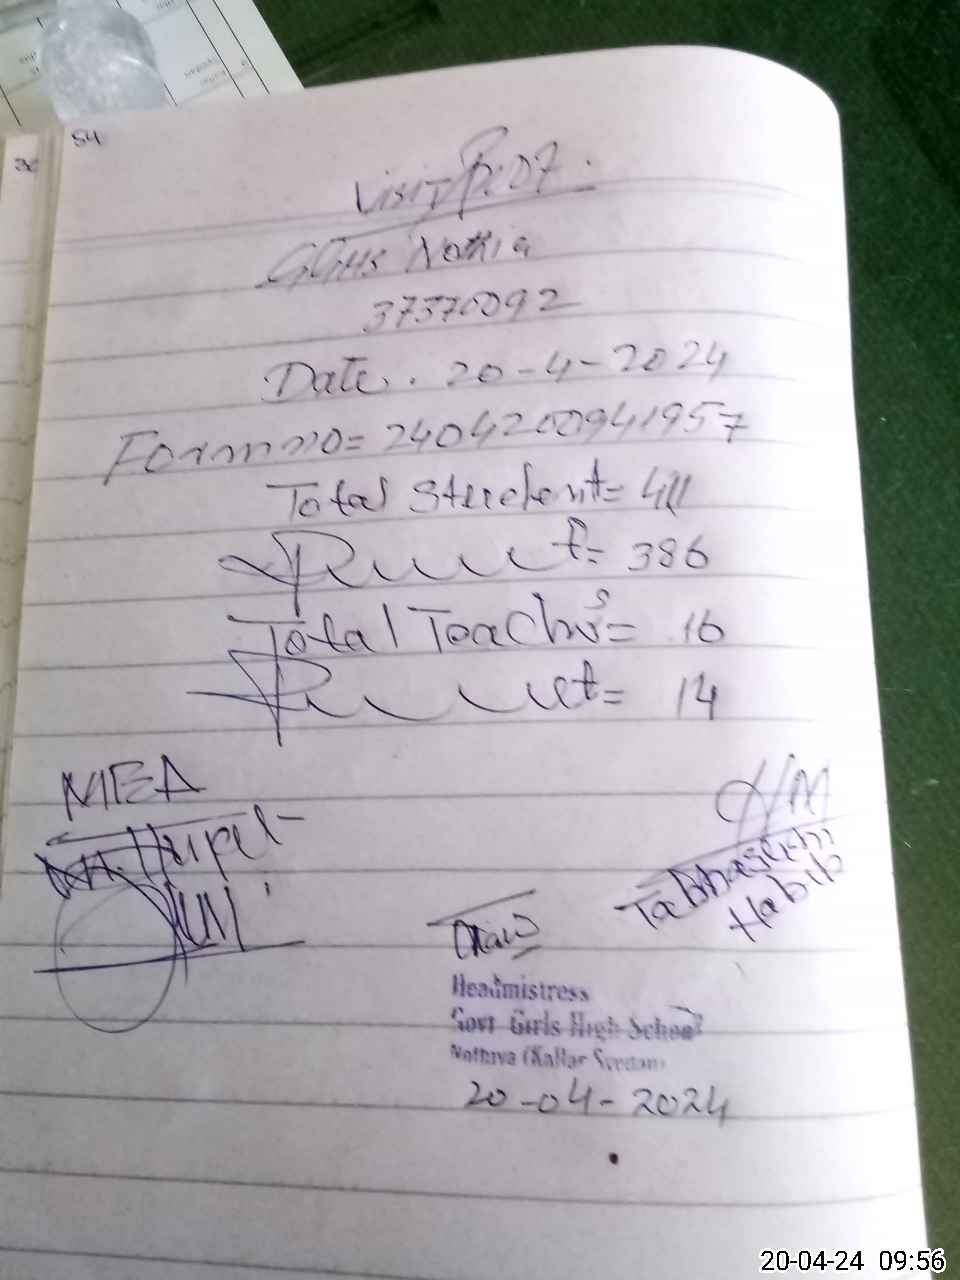 54
Visit P:07.
GGHS Nothia
37370092
Date. 20-4-2024
Form no= 2404200941957
Total Student= 411
Present= 386
Total Teachers= 16
Present= 14
MEA
H/M
Tabbasum
Habib
Headmistress
Govt Girls High School
Nothiya (Kallar Syedan)
20-04-2024
20-04-24 09:56